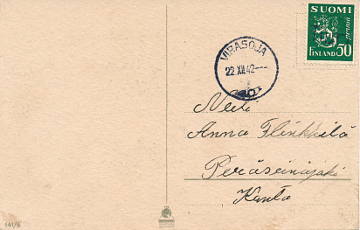 SUOMI
FINLAND 50
VIRASOJA
22.XII.42
Neiti
Anna Flinkkilä
Peräseinäjoki
Kanta